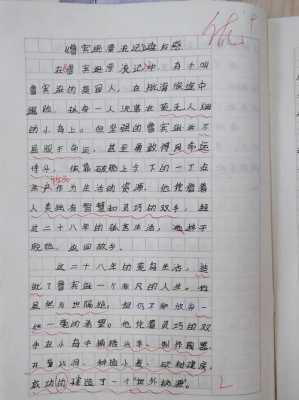 《鲁宾逊漂流记》读后感
在《鲁宾逊漂流记》中,有个叫
鲁宾逊的英国人,在航海旅途中
遇险,独自一人漂落在荒无人烟
的小岛上。但坚强的鲁宾逊并不
屈服于命运,甚至勇敢得同命运
作斗,依靠破船上余下的一丁点
作为生活的资源,他凭借着
人类独有智慧和灵巧的双手,经
过二十八年的孤苦生活,他终于
脱险,返回故乡。
这二十八年的荒岛生活,造
就了鲁宾逊一个非凡的人生。他
虽然与世隔绝,但仍不断放弃一
丝一毫的希望。他凭着灵巧的双
手在小岛中捕捉山羊,制作陶器,
开垦山洞,种植小麦,砍树建房,
成功的建造了一个“世外桃源”。